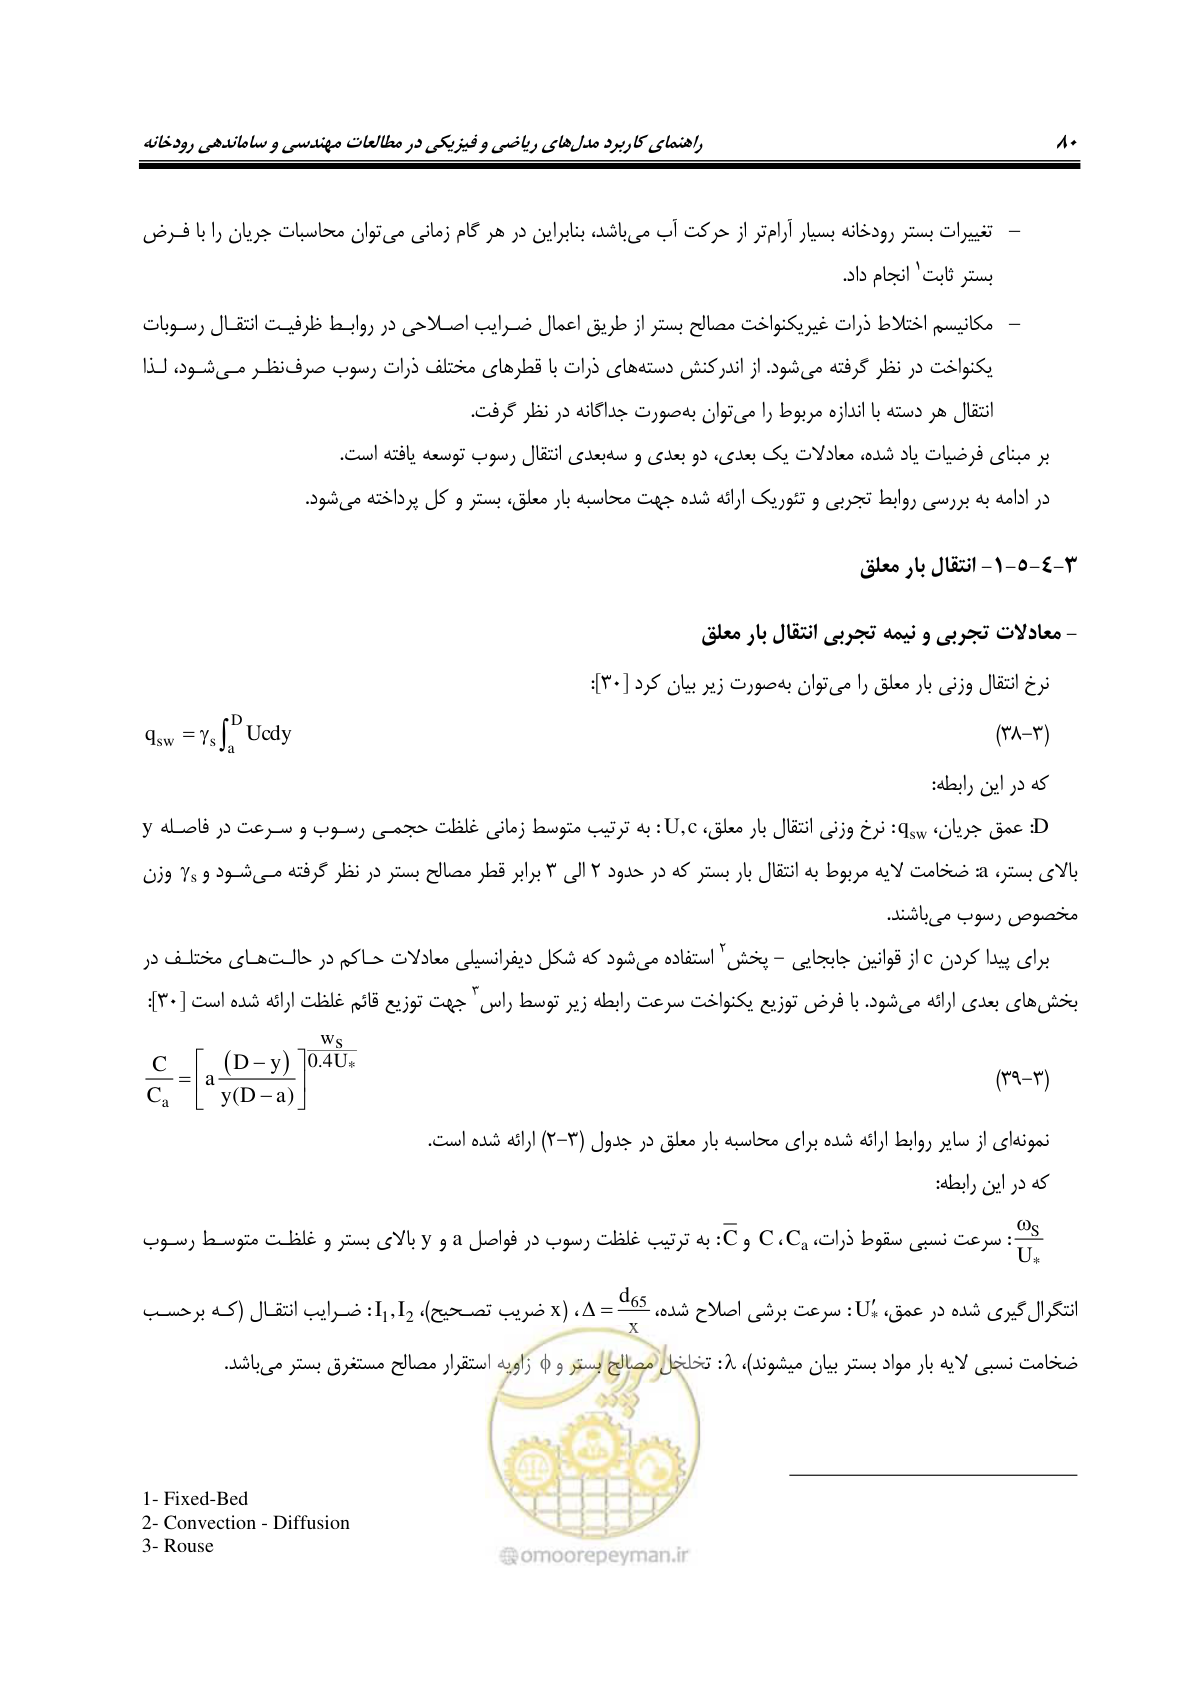 ۸۰ راهنمای کاربرد مدل‌های ریاضی و فیزیکی در مطالعات مهندسی و ساماندهی رودخانه
– تغییرات بستر رودخانه بسیار آرام‌تر از حرکت آب می‌باشد، بنابراین در هر گام زمانی می‌توان محاسبات جریان را با فـرض
بستر ثابت۱ انجام داد.
– مکانیسم اختلاط ذرات غیریکنواخت مصالح بستر از طریق اعمال ضـرایب اصـلاحی در روابـط ظرفیـت انتقـال رسـوبات
یکنواخت در نظر گرفته می‌شود. از اندرکنش دسته‌های ذرات با قطرهای مختلف ذرات رسوب صرف‌نظـر مـی‌شـود، لـذا
انتقال هر دسته با اندازه مربوط را می‌توان به‌صورت جداگانه در نظر گرفت.
بر مبنای فرضیات یاد شده، معادلات یک بعدی، دو بعدی و سه‌بعدی انتقال رسوب توسعه یافته است.
در ادامه به بررسی روابط تجربی و تئوریک ارائه شده جهت محاسبه بار معلق، بستر و کل پرداخته می‌شود.
۳-۴-۵-۱- انتقال بار معلق
– معادلات تجربی و نیمه تجربی انتقال بار معلق
نرخ انتقال وزنی بار معلق را می‌توان به‌صورت زیر بیان کرد [۳۰]:
(۳-۳۸) q_sw = γ_s ∫_a^D Ucdy
که در این رابطه:
D: عمق جریان، q_sw: نرخ وزنی انتقال بار معلق، U,c: به ترتیب متوسط زمانی غلظت حجمـی رسـوب و سـرعت در فاصـله y
بالای بستر، a: ضخامت لایه مربوط به انتقال بار بستر که در حدود ۲ الی ۳ برابر قطر مصالح بستر در نظر گرفته مـی‌شـود و γ_s وزن
مخصوص رسوب می‌باشند.
برای پیدا کردن c از قوانین جابجایی – پخش۲ استفاده می‌شود که شکل دیفرانسیلی معادلات حـاکم در حالـت‌هـای مختلـف در
بخش‌های بعدی ارائه می‌شود. با فرض توزیع یکنواخت سرعت رابطه زیر توسط راس۳ جهت توزیع قائم غلظت ارائه شده است [۳۰]:
(۳-۳۹) C/C_a = [a (D – y)/(y(D – a))]^(w_S/0.4U_*)
نمونه‌ای از سایر روابط ارائه شده برای محاسبه بار معلق در جدول (۳-۲) ارائه شده است.
که در این رابطه:
ω_S/U_*: سرعت نسبی سقوط ذرات، C ،C_a و C̅: به ترتیب غلظت رسوب در فواصل a و y بالای بستر و غلظـت متوسـط رسـوب
انتگرال‌گیری شده در عمق، U′_*: سرعت برشی اصلاح شده، Δ = d_65/x، (x ضریب تصـحیح)، I_1,I_2: ضـرایب انتقـال (کـه برحسـب
ضخامت نسبی لایه بار مواد بستر بیان میشوند)، λ: تخلخل مصالح بستر و ϕ زاویه استقرار مصالح مستغرق بستر می‌باشد.
1- Fixed-Bed
2- Convection - Diffusion
3- Rouse
امور پیمان
@omoorepeyman.ir